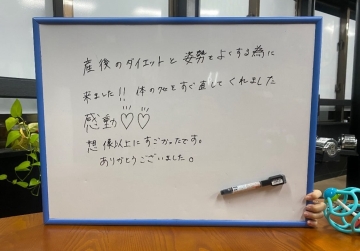 産後のダイエットと姿勢をよくする為に
来ました!! 体のクセをすぐ直してくれました
感動♡♡
想像以上にすごかったです。
ありがとうございました。